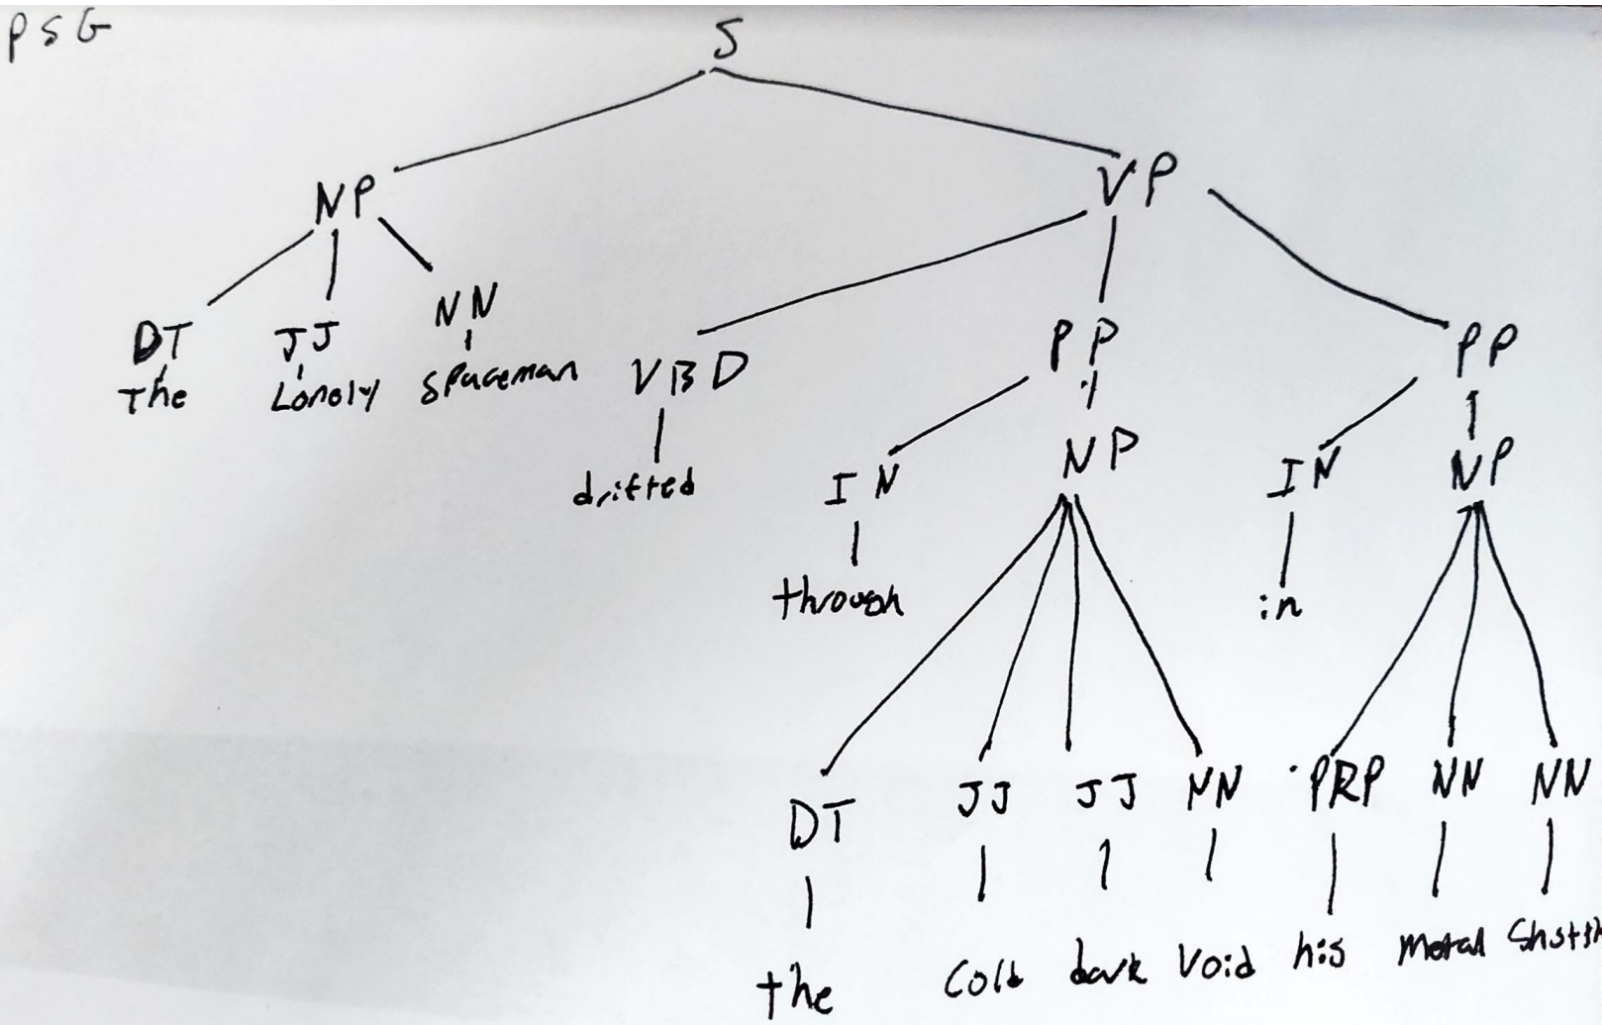 PSG
S
NP VP
DT JJ NN VBD PP PP
The Lonely spaceman drifted IN NP IN NP
through in
DT JJ JJ NN PRP NN NN
the Cold dark Void his metal